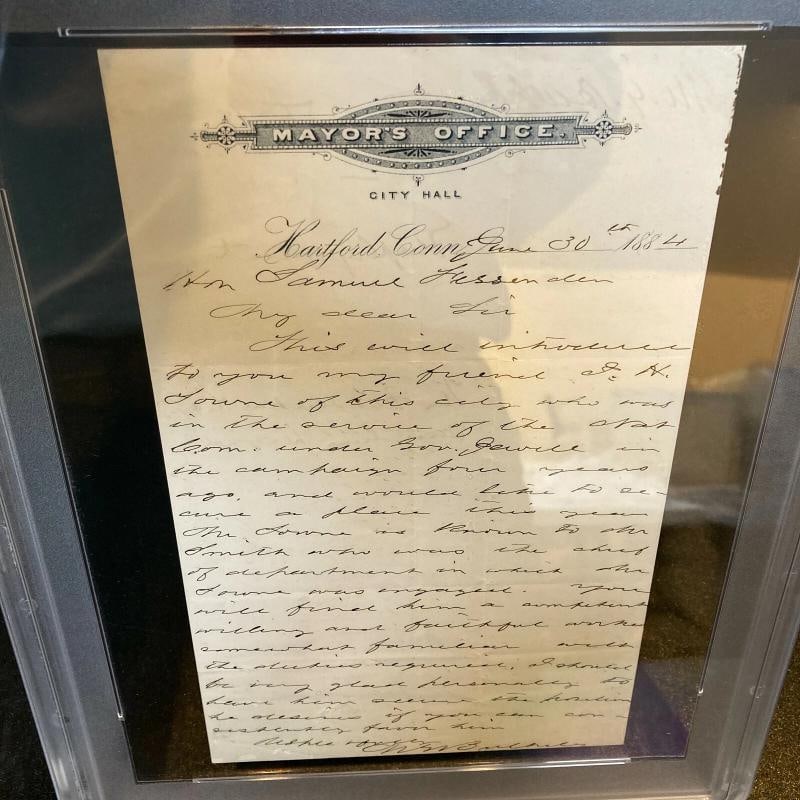 MAYOR'S OFFICE.
CITY HALL
Hartford, Conn, June 30th 1884
Hon Samuel Fessenden
My dear Sir
This will introduce
to you my friend J. H.
Towne of this city who was
in the service of the Nat
Com. under Gov. Jewell in
the campaign four years
ago, and would like to se-
cure a place this year
Mr Towne is known to Mr
Smith who was the chief
of department in which Mr
Towne was engaged. You
will find him a competent
willing and faithful worker
somewhat familiar with
the duties required, I should
be very glad personally to
have him secure the position
he desires if you can con-
sistently favor him
Bulkeley